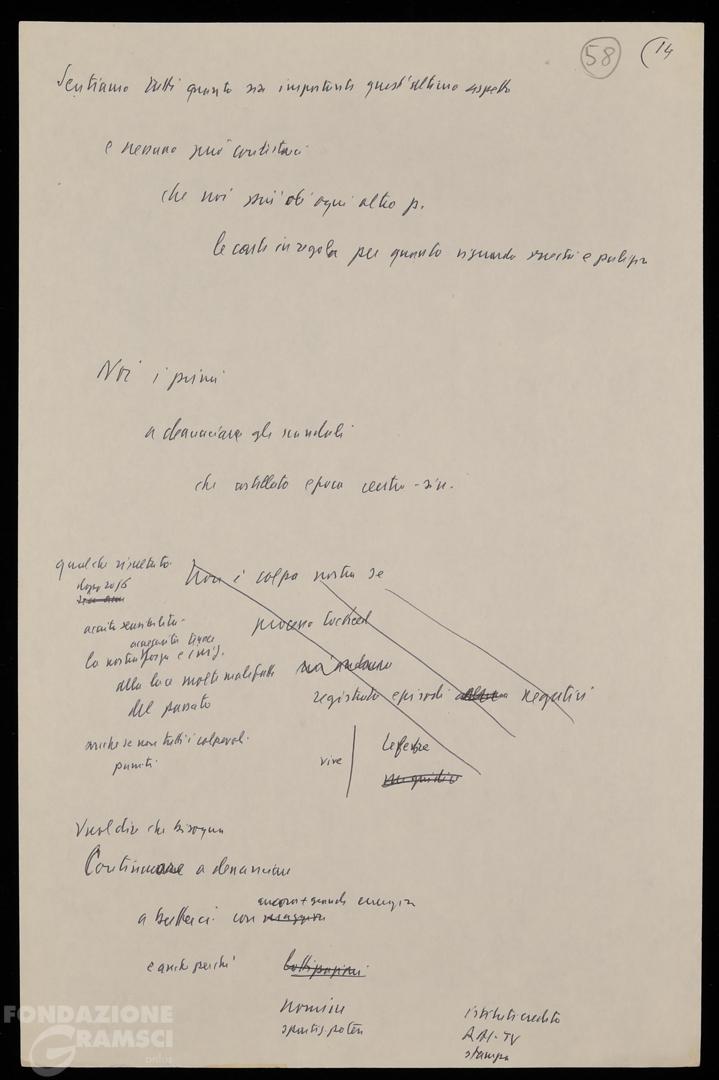 58 (14
Sentiamo tutti quanto sia importante quest'ultimo aspetto
e nessuno può contestarci
che noi più di ogni altro p.
le carte in regola per quanto riguarda onestà e pulizia
Noi i primi
a denunciare gli scandali
che costellato epoca centro-sin.
qualche risultato
dopo 20/6
Non è colpa nostra se
processo Lockeed
la nostra forza e
alla luce molte malefatte
del passato
registrato episodi negativi
anche se non tutti i colpevoli
puniti
vive
Lefebre
Vuol dire che bisogna
Continuare a denunciare
ancora + grande energia
a batterci con maggiore
e anche perché
nomine
spartiz. poteri
istituti credito
RAI-TV
stampa
FONDAZIONE
GRAMSCI
onlus